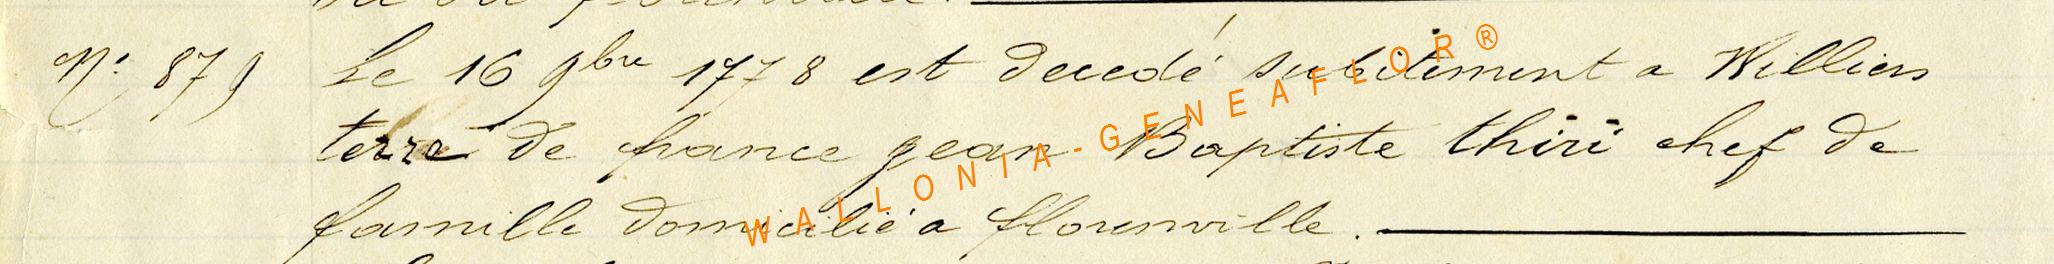 N° 879 Le 16 9bre 1778 est decedé subitement a Williers
terre de france jean Baptiste thiri chef de
famille domicilié a florenville.
WALLONIA-GENEAFLOR®